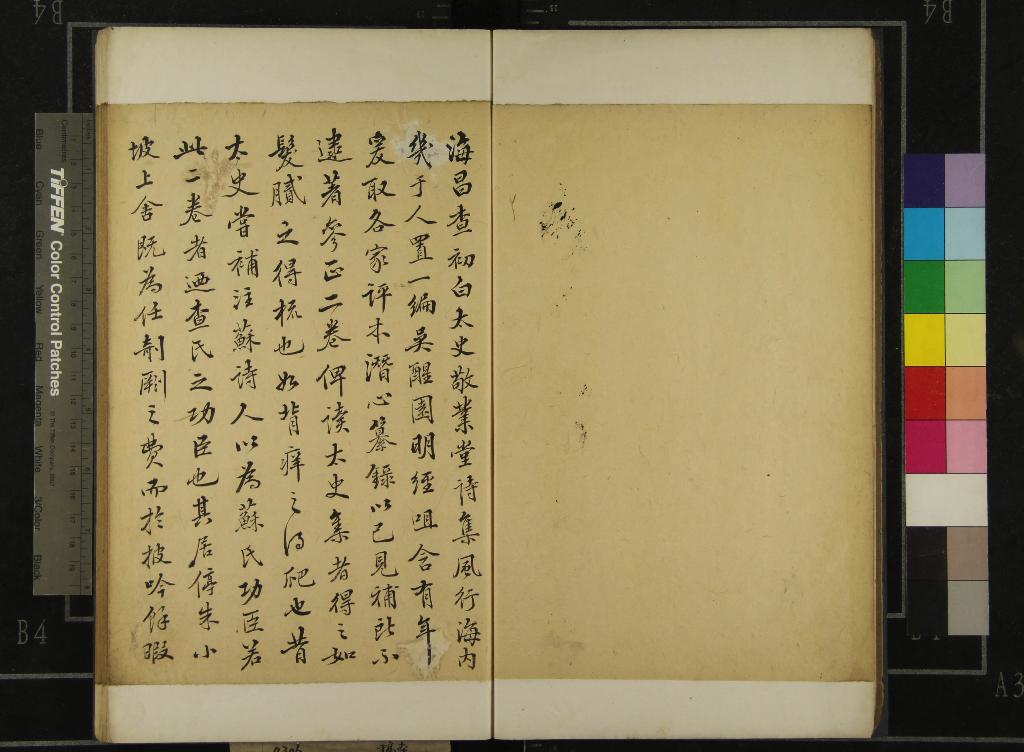 海昌查初白太史敬業堂詩集風行海内
幾于人置一編吳醒園明經咀含有年
爰取各家評本潛心纂錄以己見補所不
逮著參正二卷俾读太史集者得之如
髮膩之得梳也如背痒之得爬也昔
太史嘗補注蘇詩人以為蘇氏功臣若
此二卷者洒查氏之功臣也其居停朱小
坡上舍既為任剞劂之費而於披吟餘暇
B4
B4
B4
A3
TIFFEN Color Control Patches
Blue
Cyan
Green
Yellow
Red
Magenta
White
3/Color
Black
Centimetres